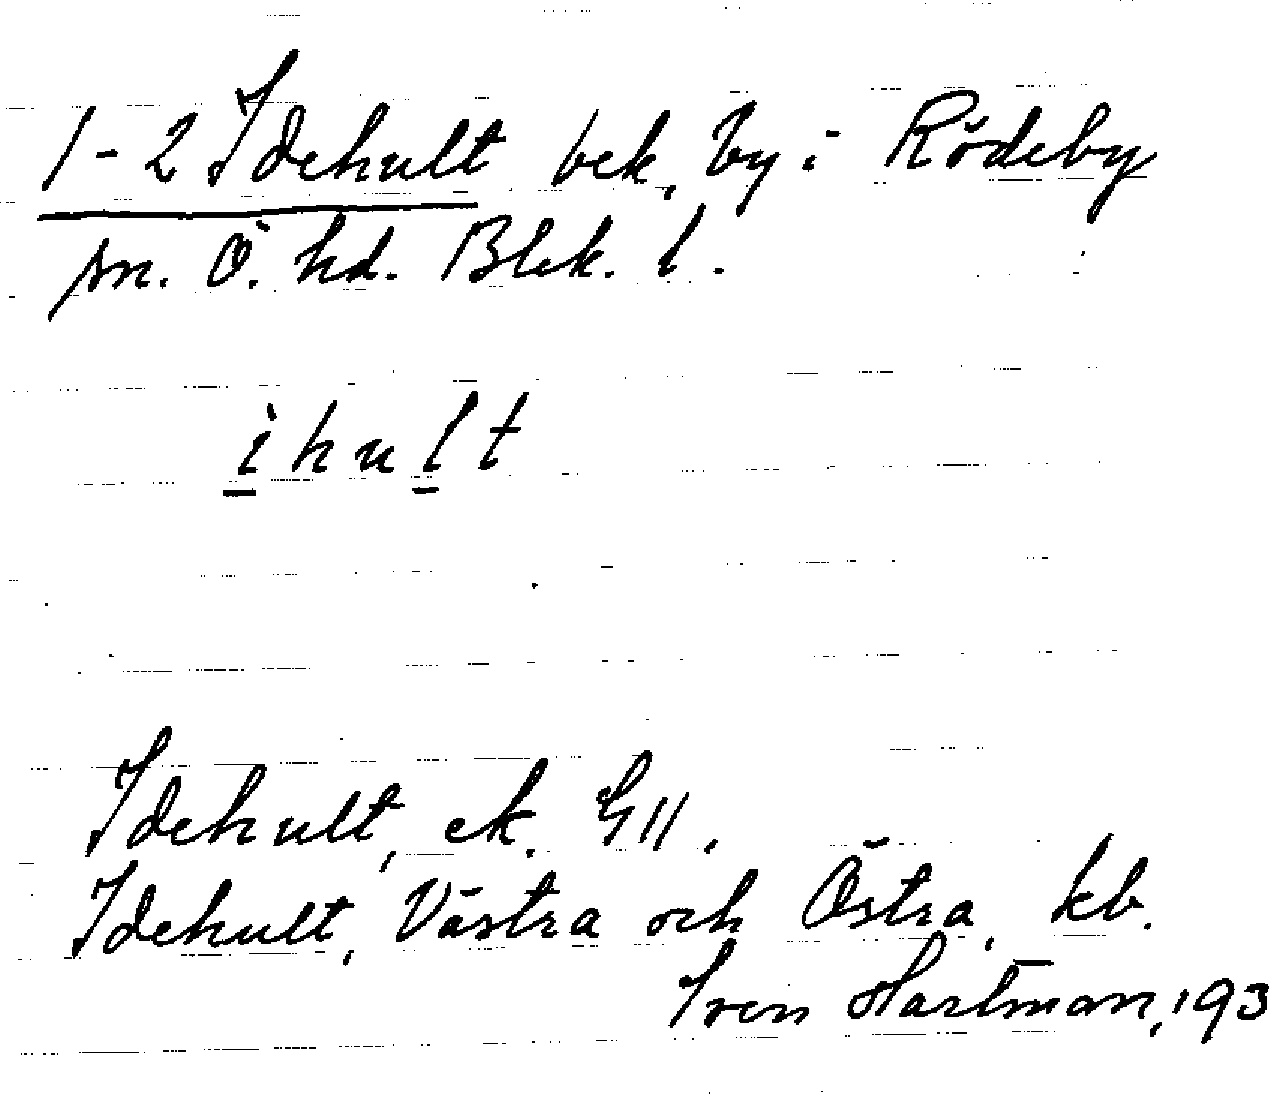 1-2 Idehult bek. by i Rödeby
sn. Ö. hd. Blek. l.
ihult
Idehult, ek. G11.
Idehult, Västra och Östra, kb.
Sven Hartman, 193